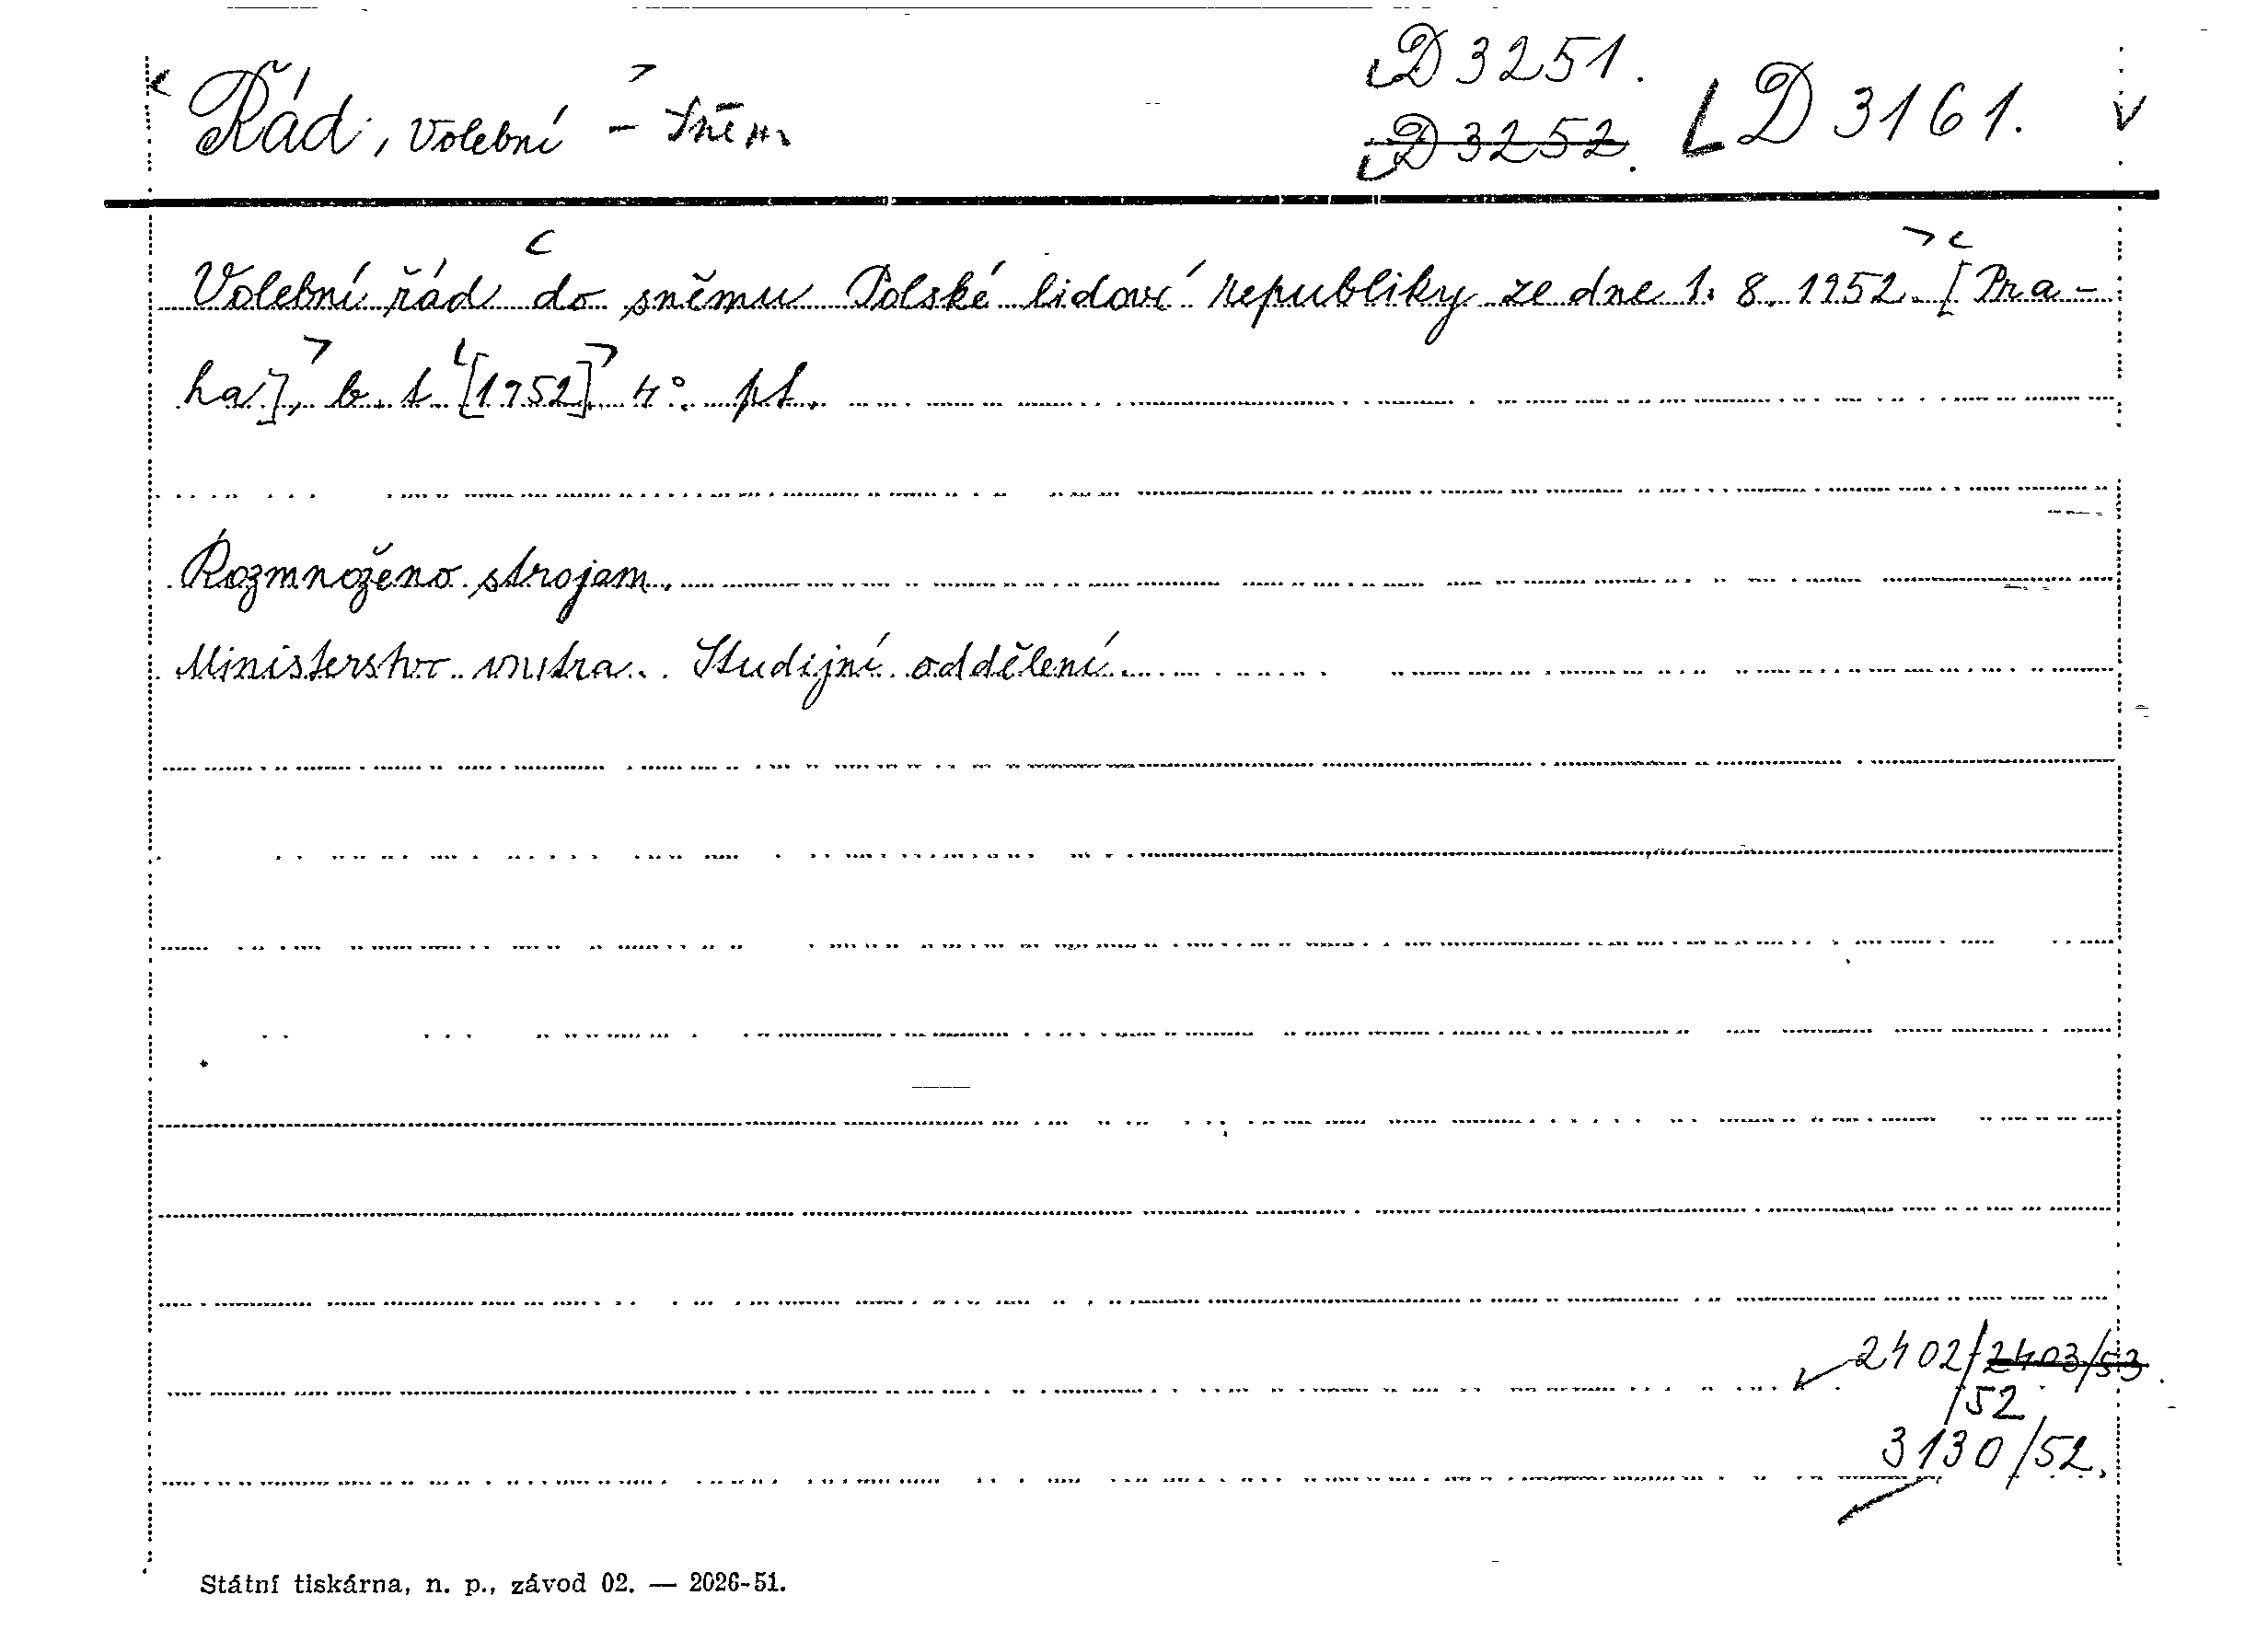 D 3251.
Řád, Volební - Sněm
D 3252. D 3161.
Volební řád do sněmu Polské lidové republiky ze dne 1. 8. 1952. [Pra-
ha], b. t. [1952]. 4°. pt.
Rozmnoženo strojem.
Ministerstvo vnitra. Studijní oddělení.
2402/2403/53.
/52
3130/52.
Státní tiskárna, n. p., závod 02. — 2026-51.